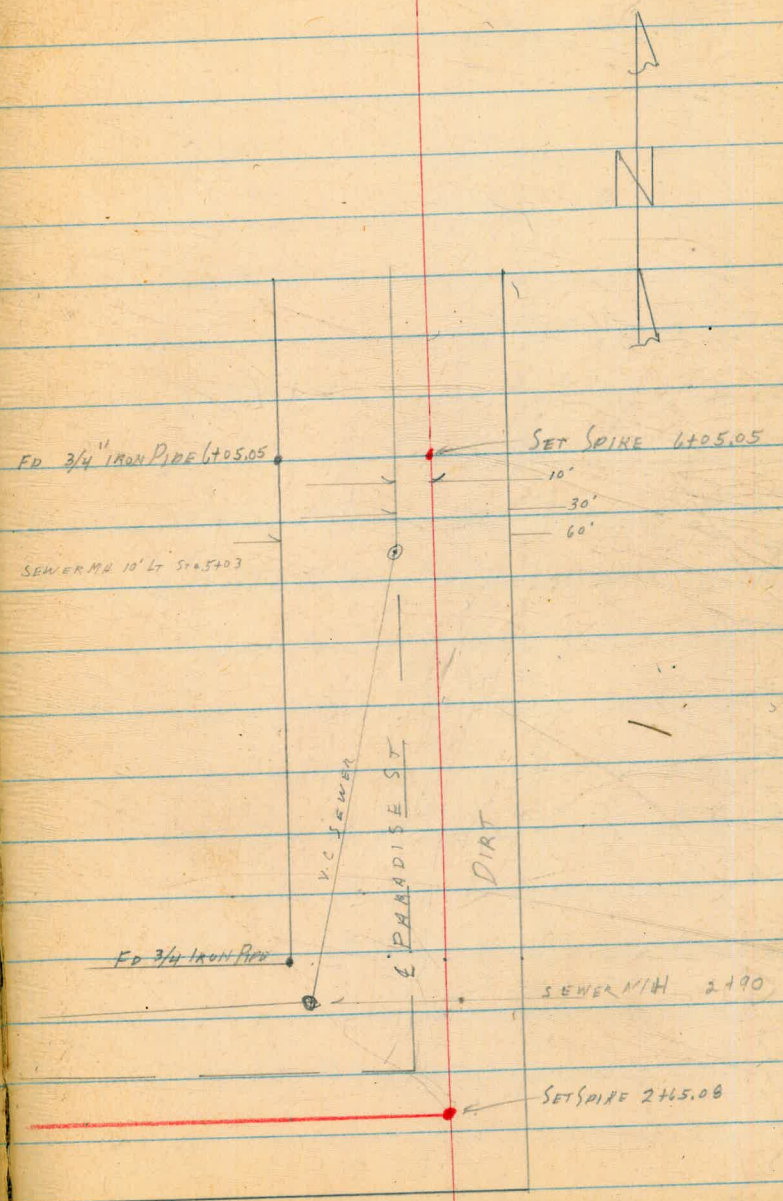 N
FD 3/4" IRON PIPE 6+05.05
SET SPIKE 6+05.05
10'
30'
60'
SEWER MH 10' LT STA 5+03
V.C SEWER
℄ PARADISE ST
DIRT
FD 3/4 IRON PIPE
SEWER MH 2+90
SET SPIKE 2+65.08